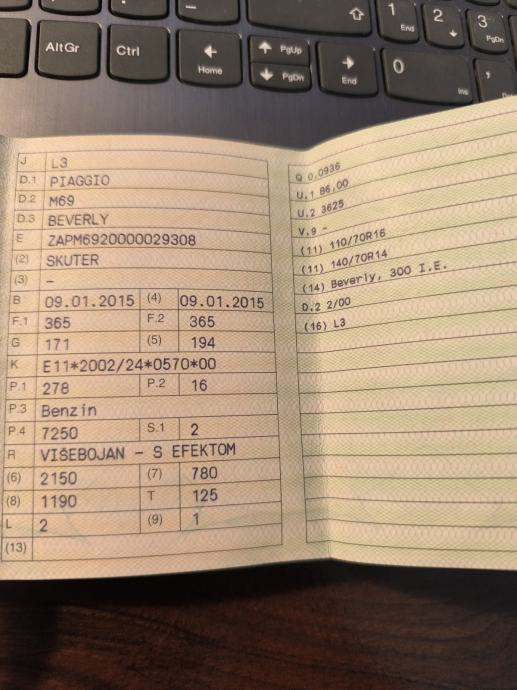 1
End
2
3
PgDn
AltGr
Ctrl
Home
PgUp
PgDn
End
0
Ins
J L3
D.1 PIAGGIO
D.2 M69
D.3 BEVERLY
E ZAPM6920000029308
(2) SKUTER
(3) –
B 09.01.2015 (4) 09.01.2015
F.1 365 F.2 365
G 171 (5) 194
K E11*2002/24*0570*00
P.1 278 P.2 16
P.3 Benzin
P.4 7250 S.1 2
R VIŠEBOJAN - S EFEKTOM
(6) 2150 (7) 780
(8) 1190 T 125
L 2 (9) 1
(13)
Q 0,0936
U.1 86,00
U.2 3625
V.9 -
(11) 110/70R16
(11) 140/70R14
(14) Beverly, 300 I.E.
D.2 2/00
(16) L3